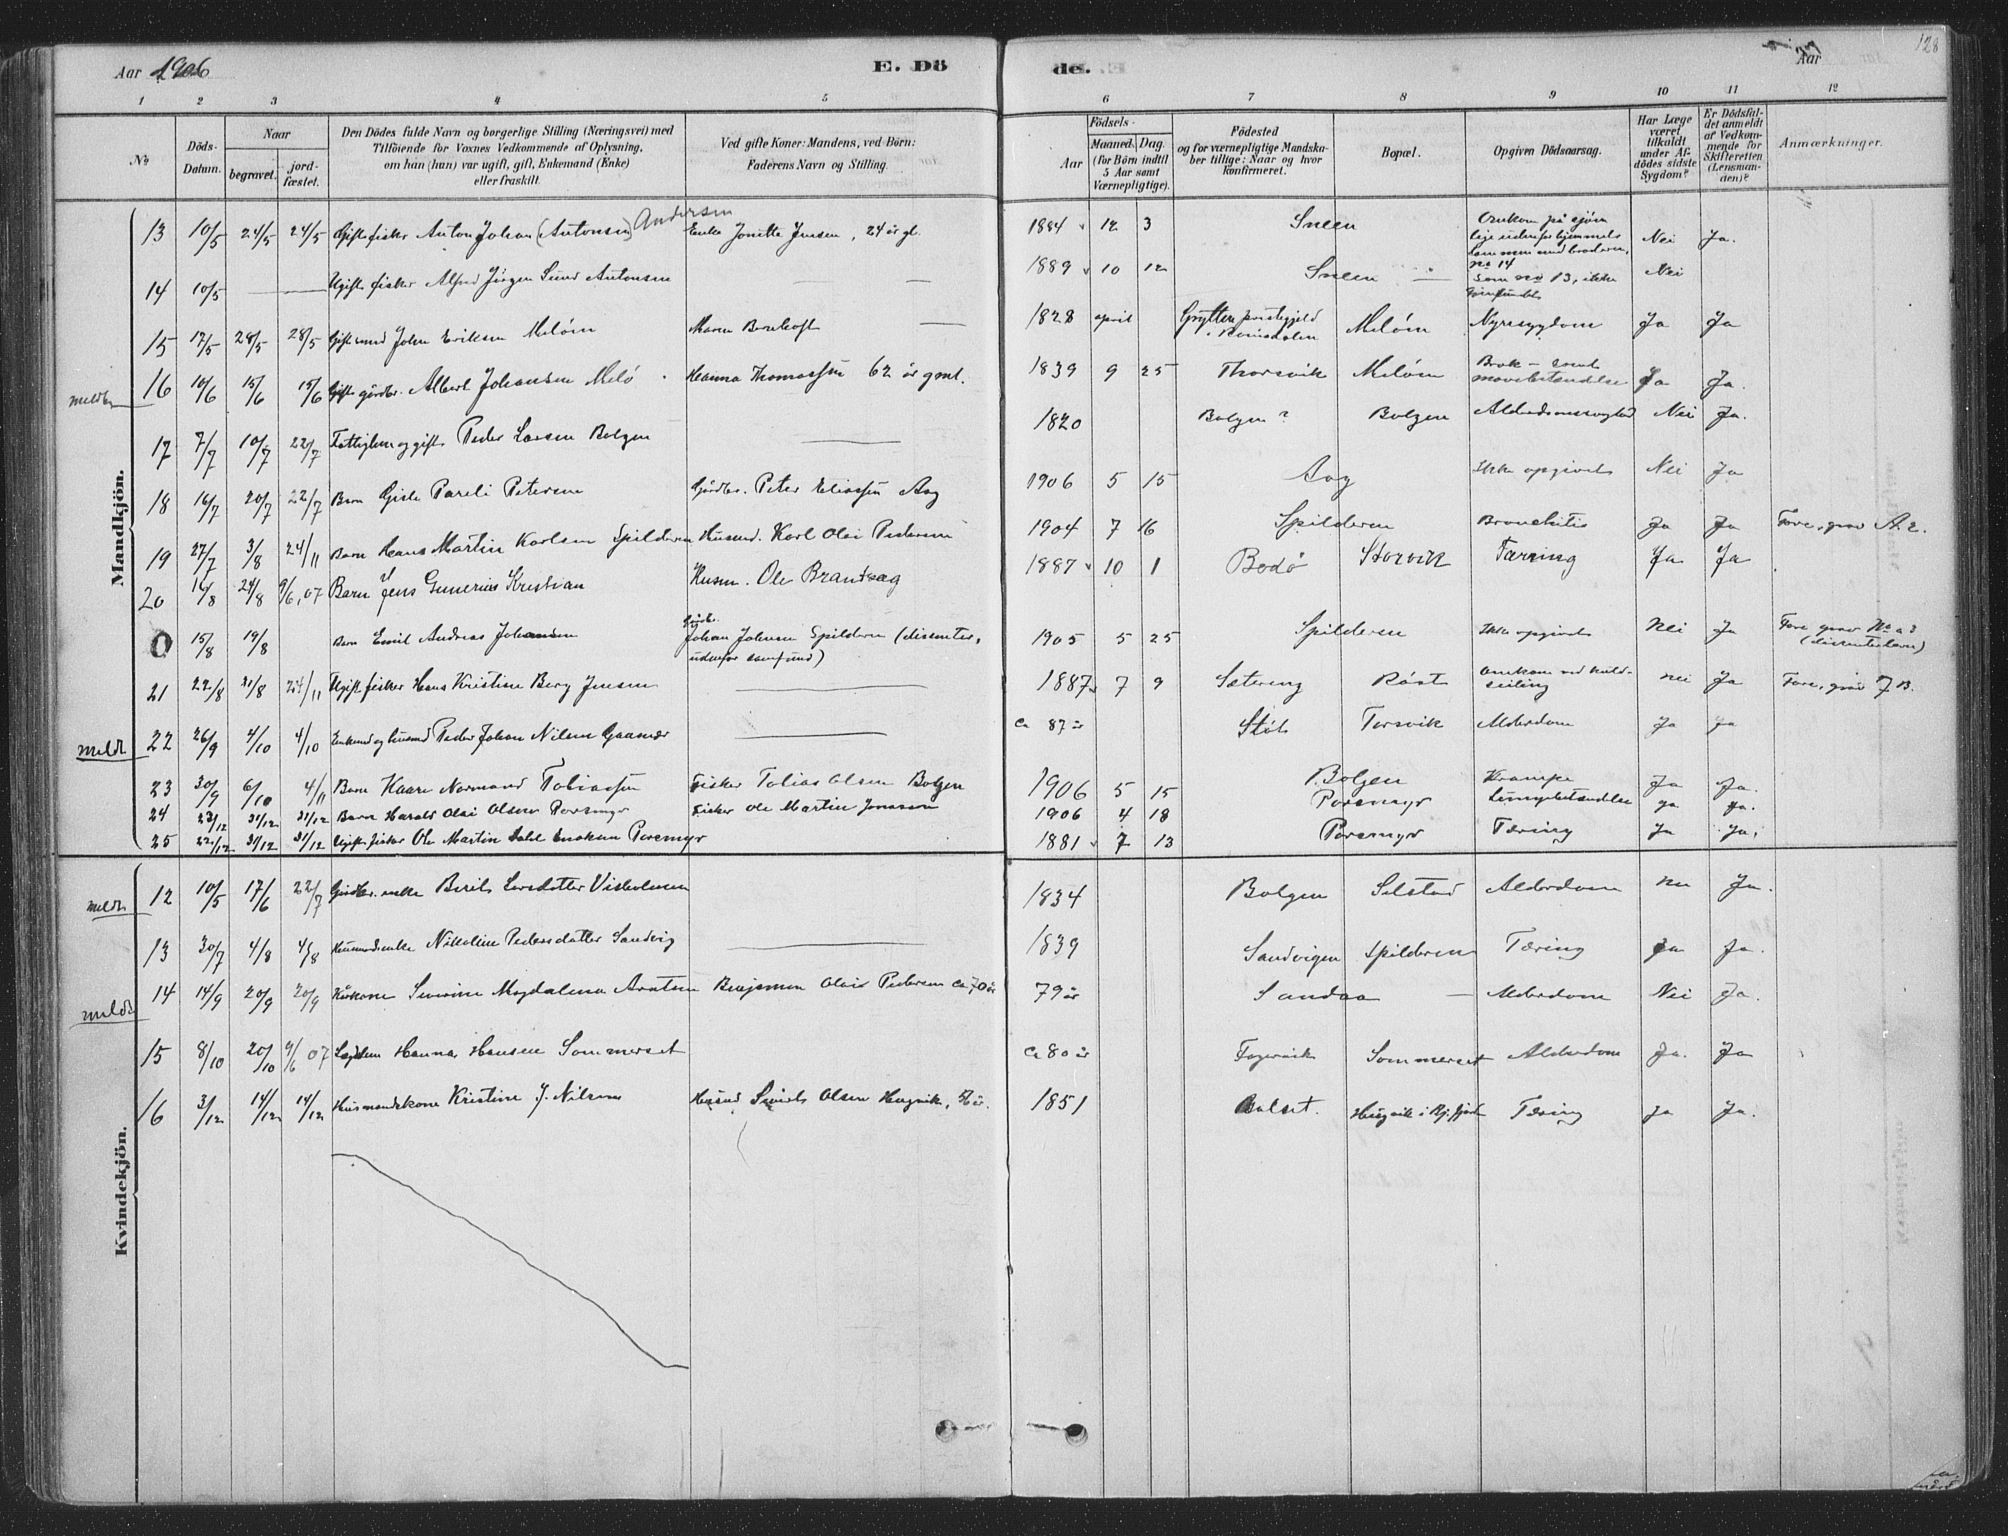 Aar 1906 E. Dö de. Aar 128
1 2 3 4 5 6 7 8 9 10 11 12
No Döds-Datum. Naar begravet. jord-fæstet. Den Dödes fulde Navn og borgerlige Stilling (Næringsvei) med Tilföiende for Voxnes Vedkommende af Oplysning, om han (hun) var ugift, gift, Enkemand (Enke) eller fraskilt. Ved gifte Koner: Mandens, ved Börn: Faderens Navn og Stilling. Födsels- Aar Maaned. Dag. (for Börn indtil 5 Aar samt Værnepligtige). Födested og for værnepligtige Mandskaber tillige: Naar og hvor konfirmeret. Bopæl. Opgiven Dödsaarsag. Har Læge været tilkaldt under Afdödes sidste Sygdom? Er Dödsfaldet anmeldt af Vedkommende for Skifteretten (Lensmanden)? Anmærkninger.
Mandkjön.
13 10/5 24/5 24/5 Gift fisker Anton Johan (Antonsen) Andersen Enke Jonette Jensen, 24 år gl. 1884 12 3 Sneen Omkom på sjøen lige udenfor hjemmet sammen med broderen, no 14 Nei Ja.
14 10/5 — — Ugift fisker Alfred Jørgen Sund Antonsen — — 1889 10 12 Sneen — Som no 13, ikke gjenfundet Nei
15 17/5 28/5 28/5 Gift mand John Eriksen Meløen Maren — 1828 april Grytten prestegjeld i Romsdalen Meløen Nyresygdom Ja Ja
meldt 16 10/6 15/6 15/6 Gift gårdbr. Albert Johansen Melø Hanna Thomassen 62 år gml. 1839 9 25 Thorsvik Meløen Brok- samt mavebetændelse Ja Ja.
17 7/7 10/7 22/7 Fattiglem og gift Peder Larsen Bolgen — 1820 Bolgen? Bolgen Alderdomssvaghed Nei Ja.
18 16/7 20/7 22/7 Barn Gisle Pareli Petersen Gårdbr. Peter Eliassen Aag 1906 5 15 Aag Ikke opgivet Nei Ja
19 27/7 3/8 24/11 Barn Hans Martin Karlsen Spilderen Husmd. Karl Olai Pedersen 1904 7 16 Spilderen Bronchitis Ja Ja
20 16/8 24/8 9/6, 07 Barn Jens Gunerius Kristian Husm. Ole Brantsæg 1887 10 1 Bodø Storvik Tæring Ja Ja
0 15/8 19/8 Barn Emil Andreas Johansen Gårdbr. Johan Johnsen Spilderen (dissenter, udenfor samfund) 1905 5 25 Spilderen Ikke opgivet Nei Ja
21 22/8 31/8 24/11 Ugift fisker Hans Kristine Berg Jensen — 1887 7 9 Sætering Røst Omkom ved kuldseiling Nei Ja
meldt 22 26/9 4/10 4/10 Enkemd og husmd Peder Johan Nilsen — ca 87 år Støt Torsvik Alderdom Ja Ja
23 30/9 6/10 4/11 Barn Kaare Normand Tobiassen Fisker Tobias Olsen Bolgen 1906 5 15 Bolgen Krampe Ja Ja.
24 23/12 31/12 31/12 Barn Harald Olai Olsen Poremyr Fisker Ole Martin Jonassen 1906 4 18 Poremyr Lungebetændelse ja Ja.
25 22/12 31/12 31/12 Ugift fisker Ole Martin Dahl Enoksen Poremyr 1881 7 13 Poremyr Tæring Ja Ja.
Kvindekjön.
meldt 12 10/5 17/6 22/7 Gårdbr. enke Berit Larsdatter 1834 Bolgen Selstad Alderdom Nei Ja.
13 30/7 4/8 4/8 Husmandsenke Nikoline Pedersdatter Sandvig — 1839 Sandvigen Spilderen Tæring Ja Ja.
meldt 14 14/9 20/9 20/9 Kårkone Severine Magdalena Arntsen Benjamin Olais Pedersen ca 70 år 79 år Sandaa — Alderdom Nei Ja.
15 8/10 20/10 9/6 07 Lægdlem Hanna Hansen Sommerset ca 80 år Fagervik Sommerset Alderdom Ja. Ja
16 3/12 14/12 14/12 Husmandskone Kristine J. Nilsen Husmd Sivert Olsen 1851 Balset. Tæring Ja Ja.